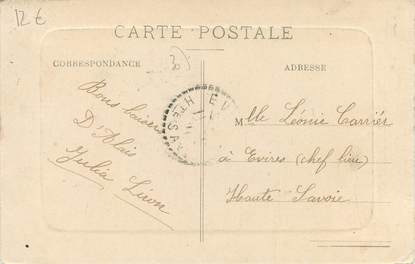 12 €
CARTE POSTALE
CORRESPONDANCE
ADRESSE
30
Bons baisers
D'Alais
Julia Liron
EV
HTE SA
Mlle Léonie Carrier
à Evires (chef lieu)
Haute Savoie